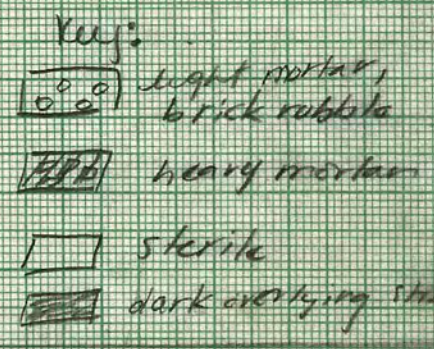 Key:
light mortar,
brick rubble
heavy mortar
sterile
dark overlying